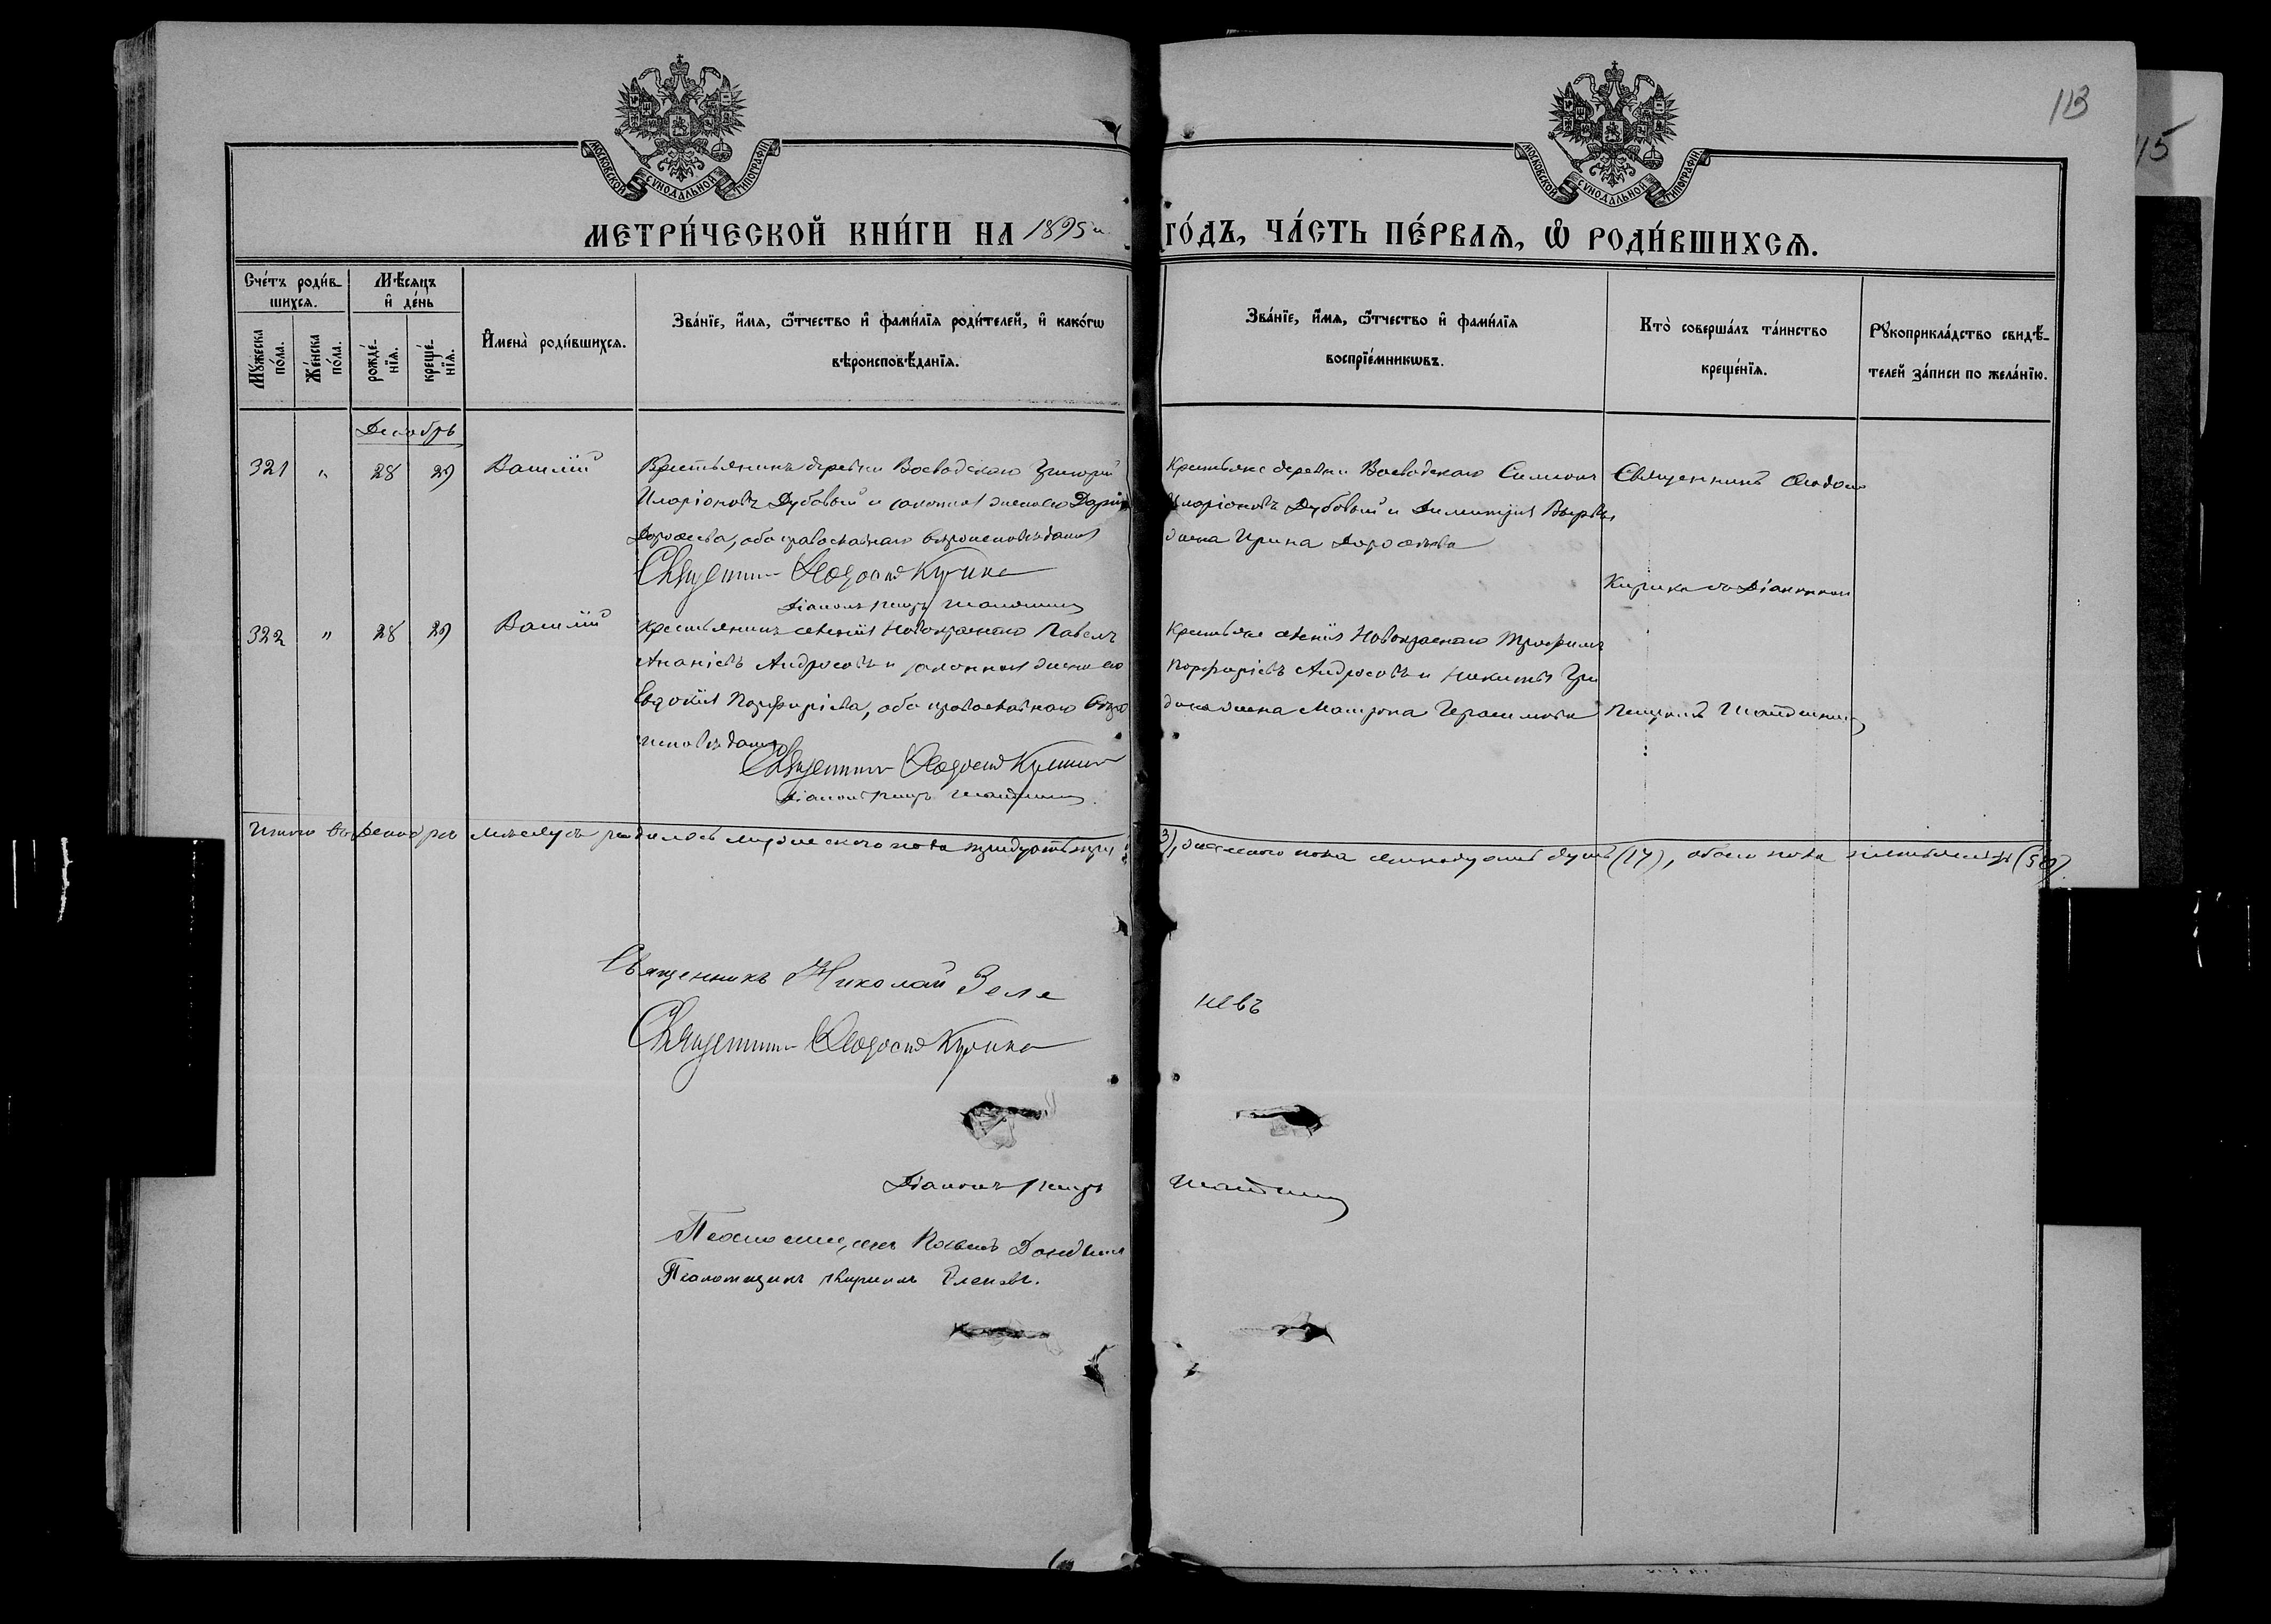 113
15
МОСКОВСКОЙ СѴНОДАЛЬНОЙ ТИПОГРАФІИ
МОСКОВСКОЙ СѴНОДАЛЬНОЙ ТИПОГРАФІИ
МЕТРИ́ЧЕСКОЙ КНИ́ГИ НА 1895й
ГО́ДЪ, ЧА́СТЬ ПЕ́РВАѦ, Ѡ РОДИ́ВШИХСѦ.
Сче́тъ роди́в-
шихсѧ.
Мꙋжеска по́ла.
Же́нска по́ла.
Мѣ́сѧцъ
и҆ де́нь
рожде́-
нїѧ.
креще́-
нїѧ.
И҆мена̀ роди́вшихсѧ.
Зва́нїе, и҆́мѧ, ѻ҆́тчество и҆ фами́лїѧ роди́телей, и҆ како́гѡ
вѣроисповѣ́данїѧ.
Зва́нїе, и҆́мѧ, ѻ҆́тчество и҆ фами́лїѧ
воспрїе́мникѡвъ.
Кто̀ соверша́лъ та́инство
креще́нїѧ.
Рꙋкоприкла́дство свидѣ́-
телей за́писи по жела́нїю.
Декабрь
321 " 28 29 Василій
Крестьянинъ деревни Воеводскаго Григорій
Иларіоновъ Дубовый и законная жена его Дарія
Дороѳеева, оба православнаго вѣроисповѣданія
Священникъ Ѳеодосій Кирика
Діаконъ Петръ
Крестьяне деревни Воеводскаго Симеонъ
Иларіоновъ Дубовый и Димитрія
жена Ирина Дороѳеева
Священникъ Ѳеодосій
Кирика съ Діакономъ
Петромъ
322 " 28 29 Василій
Крестьянинъ селенія Новокраснаго Павелъ
Ананіевъ Андросовъ и законная жена его
Евдокія Порфиріева, оба православнаго вѣро
исповѣданія
Священникъ Ѳеодосій Кирика
Діаконъ Петръ
Крестьяне селенія Новокраснаго Трофимъ
Порфиріевъ Андросовъ и Никиты
жена Матрона Герасимова
Итого въ Декабрѣ мѣсяцѣ родилось мужескаго пола тридцать три (33), женскаго пола семнадцать душъ (17), обоего пола пятьдесятъ (50).
Священникъ Николай Зеле
невъ
Священникъ Ѳеодосій Кирика
Діаконъ Петръ
Псаломщикъ
Псаломщикъ Кириллъ